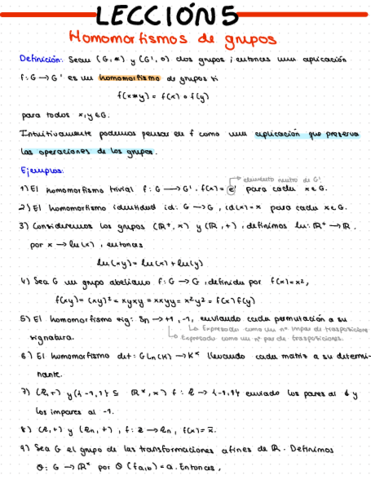 LECCIÓN 5
Homomorfismos de grupos
Definición: Sean (G,*) y (G',o) dos grupos, entonces una aplicación
f: G → G' es un homomorfismo de grupos si
f(x*y) = f(x) o f(y)
para todos x,y ∈ G.
Intuitivamente podemos pensar en f como una aplicación que preserva
las operaciones de los grupos.
Ejemplos:
elemento neutro de G'
1) El homomorfismo trivial f: G → G', f(x) = e' para cada x ∈ G.
2) El homomorfismo identidad id: G → G, id(x) = x para cada x ∈ G.
3) Consideremos los grupos (R⁺, x) y (R, +), definimos ln: R⁺ → R,
por x → ln(x), entonces
ln(xy) = ln(x) + ln(y)
4) Sea G un grupo abeliano f: G → G, definida por f(x) = x²,
f(xy) = (xy)² = xyxy = xxyy = x²y² = f(x) f(y)
5) El homomorfismo sig: Sn → +1, -1, enviando cada permutación a su
signatura.
La expresado como un nº impar de trasposiciones
Expresado como un nº par de trasposiciones.
6) El homomorfismo det: GLn(K) → K* llevando cada matriz a su determi-
nante.
7) (Z,+) y {-1,1} ⊆ (R*, x) f: Z → {-1,1} enviado los pares al 1 y
los impares al -1.
8) (Z,+) y (Zn,+), f: Z → Zn, f(x) = x̄.
9) Sea G el grupo de las transformaciones afines de R. Definimos
θ: G → R* por θ(f a,b) = a. Entonces,